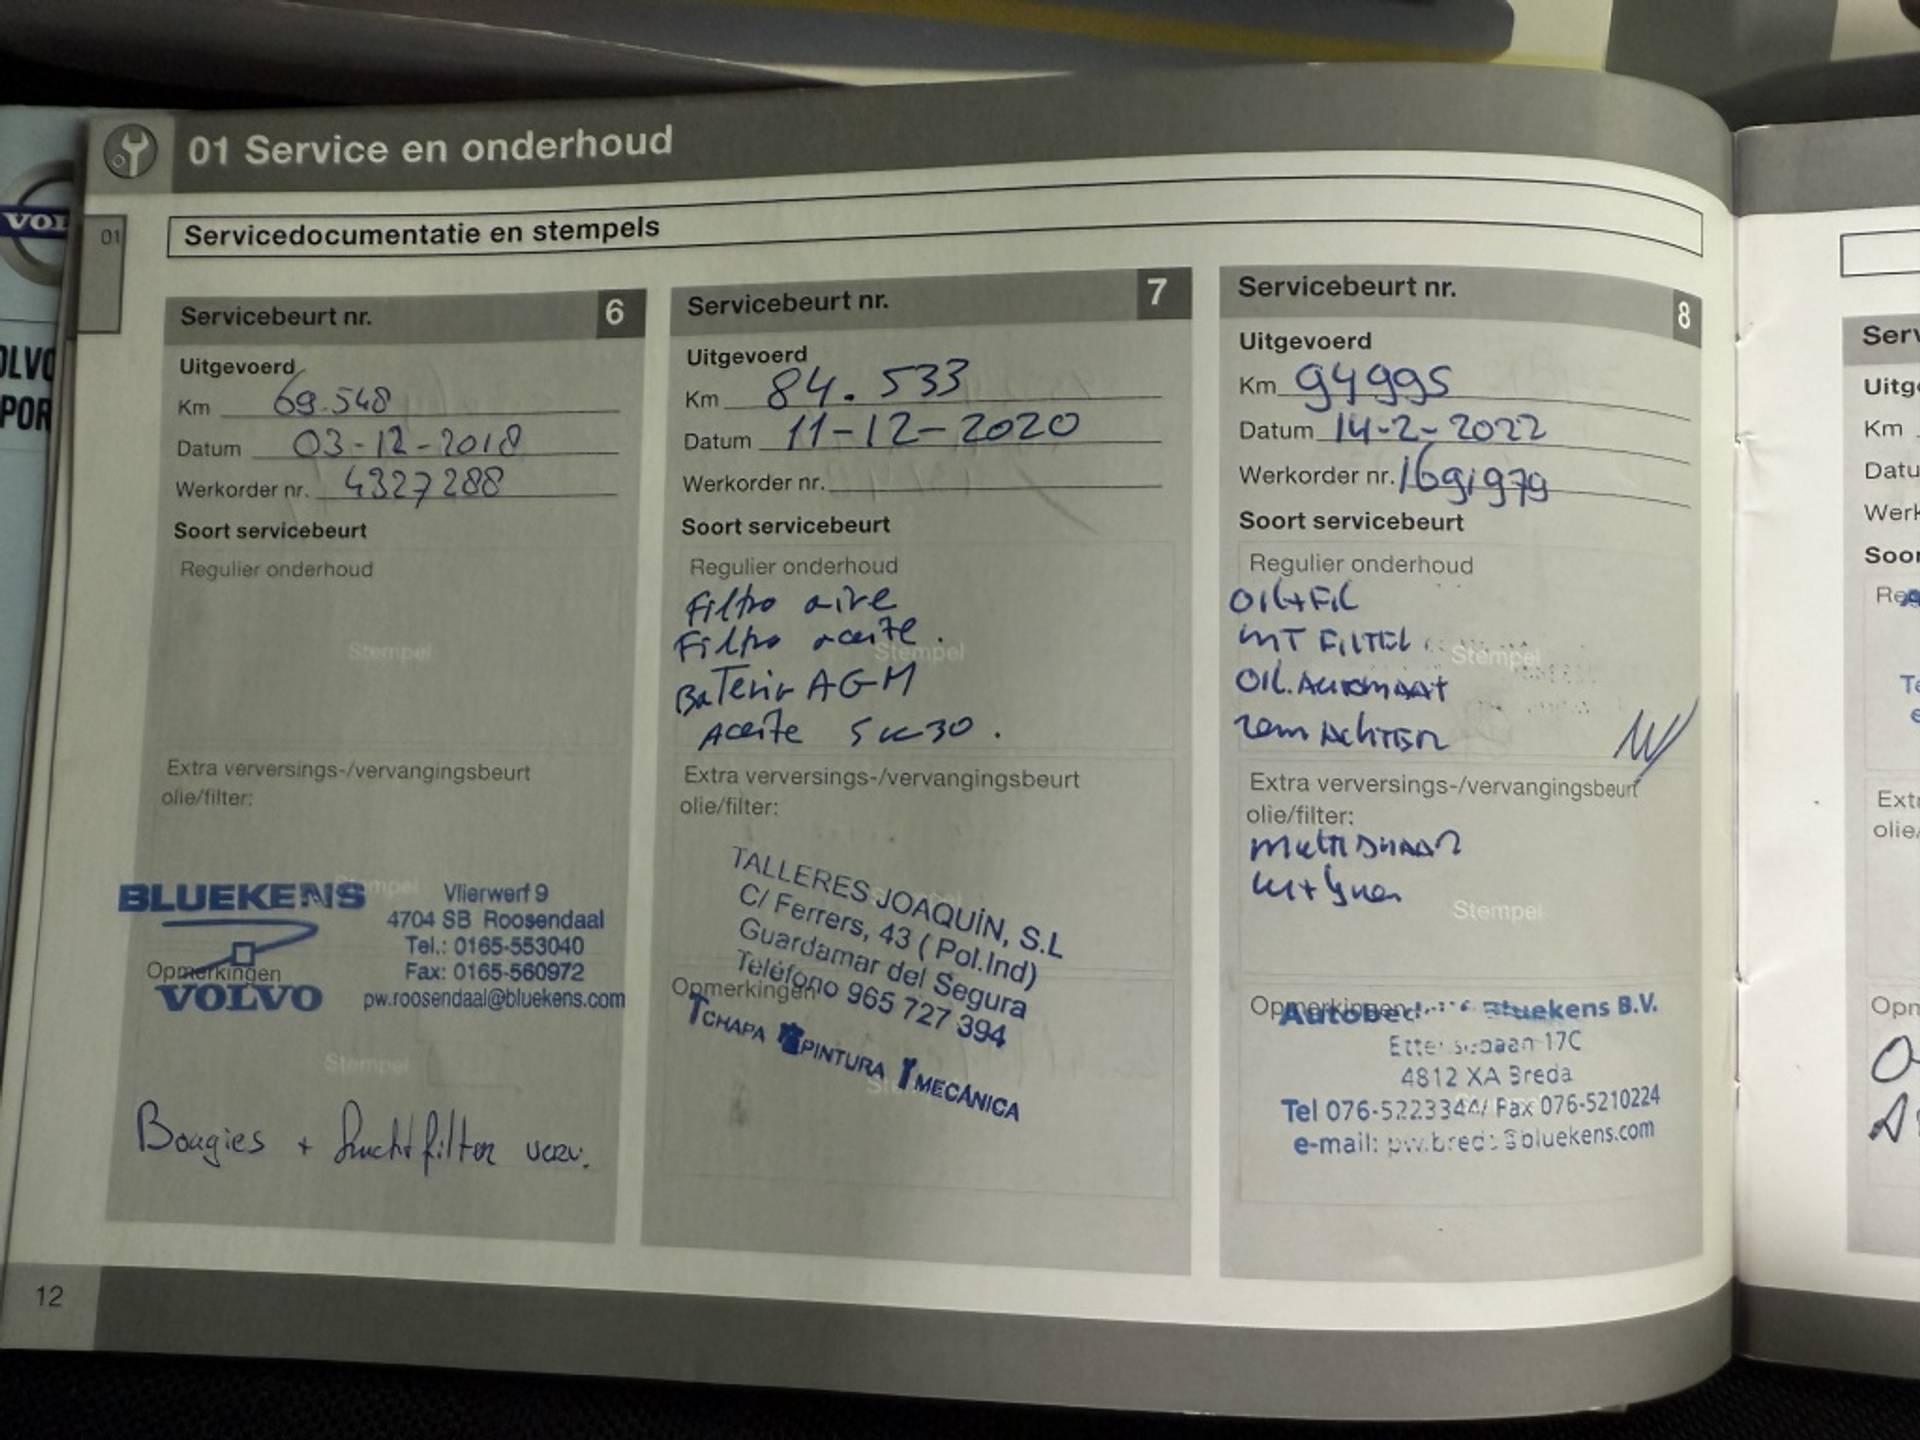 01 Service en onderhoud
01
Servicedocumentatie en stempels
VOL
OLVO
POR
Servicebeurt nr. 6
Uitgevoerd
Km 69.548
Datum 03-12-2018
Werkorder nr. 4327288
Soort servicebeurt
Regulier onderhoud
Stempel
Extra verversings-/vervangingsbeurt
olie/filter:
Stempel
BLUEKENS
VOLVO
Vlierwerf 9
4704 SB Roosendaal
Tel.: 0165-553040
Fax: 0165-560972
pw.roosendaal@bluekens.com
Opmerkingen
Stempel
Bougies + luchtfilter verv.
Servicebeurt nr. 7
Uitgevoerd
Km 84.533
Datum 11-12-2020
Werkorder nr.
Soort servicebeurt
Regulier onderhoud
Filtro aire
Filtro aceite.
Stempel
Bateria AGM
Aceite 5w30.
Extra verversings-/vervangingsbeurt
olie/filter:
TALLERES JOAQUÍN, S.L
C/ Ferrers, 43 ( Pol.Ind)
Guardamar del Segura
Teléfono 965 727 394
Opmerkingen
CHAPA PINTURA MECÁNICA
Servicebeurt nr. 8
Uitgevoerd
Km 94995
Datum 14-2-2022
Werkorder nr. 1691979
Soort servicebeurt
Regulier onderhoud
OIL+FIL
INT FILTER
Stempel
OIL. AUTOMAAT
rem ACHTER
Extra verversings-/vervangingsbeurt
olie/filter:
multisnaar
Stempel
Opmerkingen
Autobedrijf Bluekens B.V.
Ettensebaan 17C
4812 XA Breda
Tel 076-5223344/ Fax 076-5210224
e-mail: pw.breda@bluekens.com
12
Serv
Uitge
Km
Datu
Werk
Soor
Extr
olie/
Opm